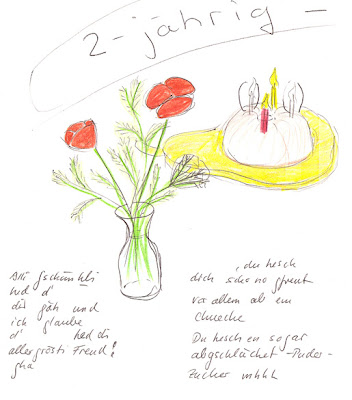 2-jährig -
Alli gschänkli
hed d'
dir gäh und
ich glaube
d' hed di
allergrösti Freud!
gha
, du hesch
dich scho no gfreut
vor allem ab em
chueche
Du hesch en sogar
abgschläcket - Puder-
zucker mhhh